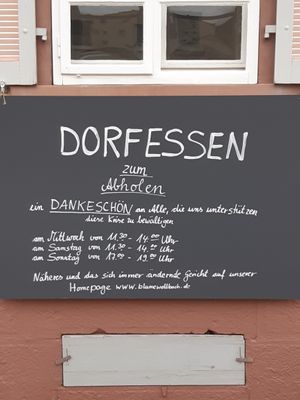 DORFESSEN
zum
Abholen
ein DANKESCHÖN an Alle, die uns unterstützen
diese Krise zu bewältigen
am Mittwoch von 11.30 - 14.00 Uhr
am Samstag von 11.30 - 14.00 Uhr
am Sonntag von 17.00 - 19.00 Uhr
Näheres und das sich immer ändernde Gericht auf unserer
Homepage www.blumewollbach.de